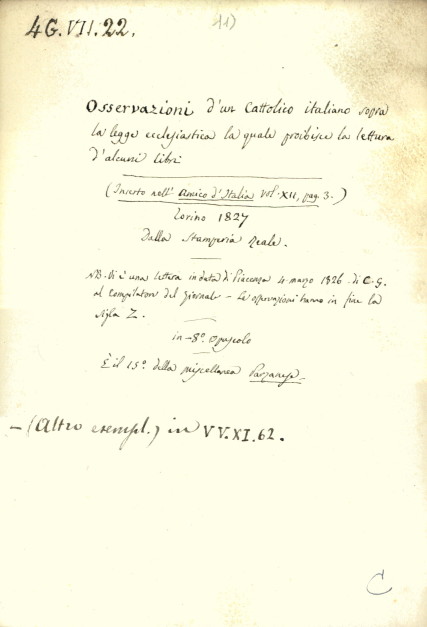 4 G. VII. 22.
11)
Osservazioni d'un Cattolico italiano sopra
la legge ecclesiastica la quale proibisce la lettura
d'alcuni libri
(Inserto nell' Amico d'Italia Vol. XII, pag. 3.)
Torino 1827
Dalla Stamperia Reale.
NB. Vi è una lettera in data di Piacenza 4. marzo 1826. di C. G.
al compilatore del Giornale - Le osservazioni hanno in fine la
sigla Z.
in-8º. Opuscolo
È il 15º. della miscellanea
- (Altro esempl.) in VV. XI. 62.
C